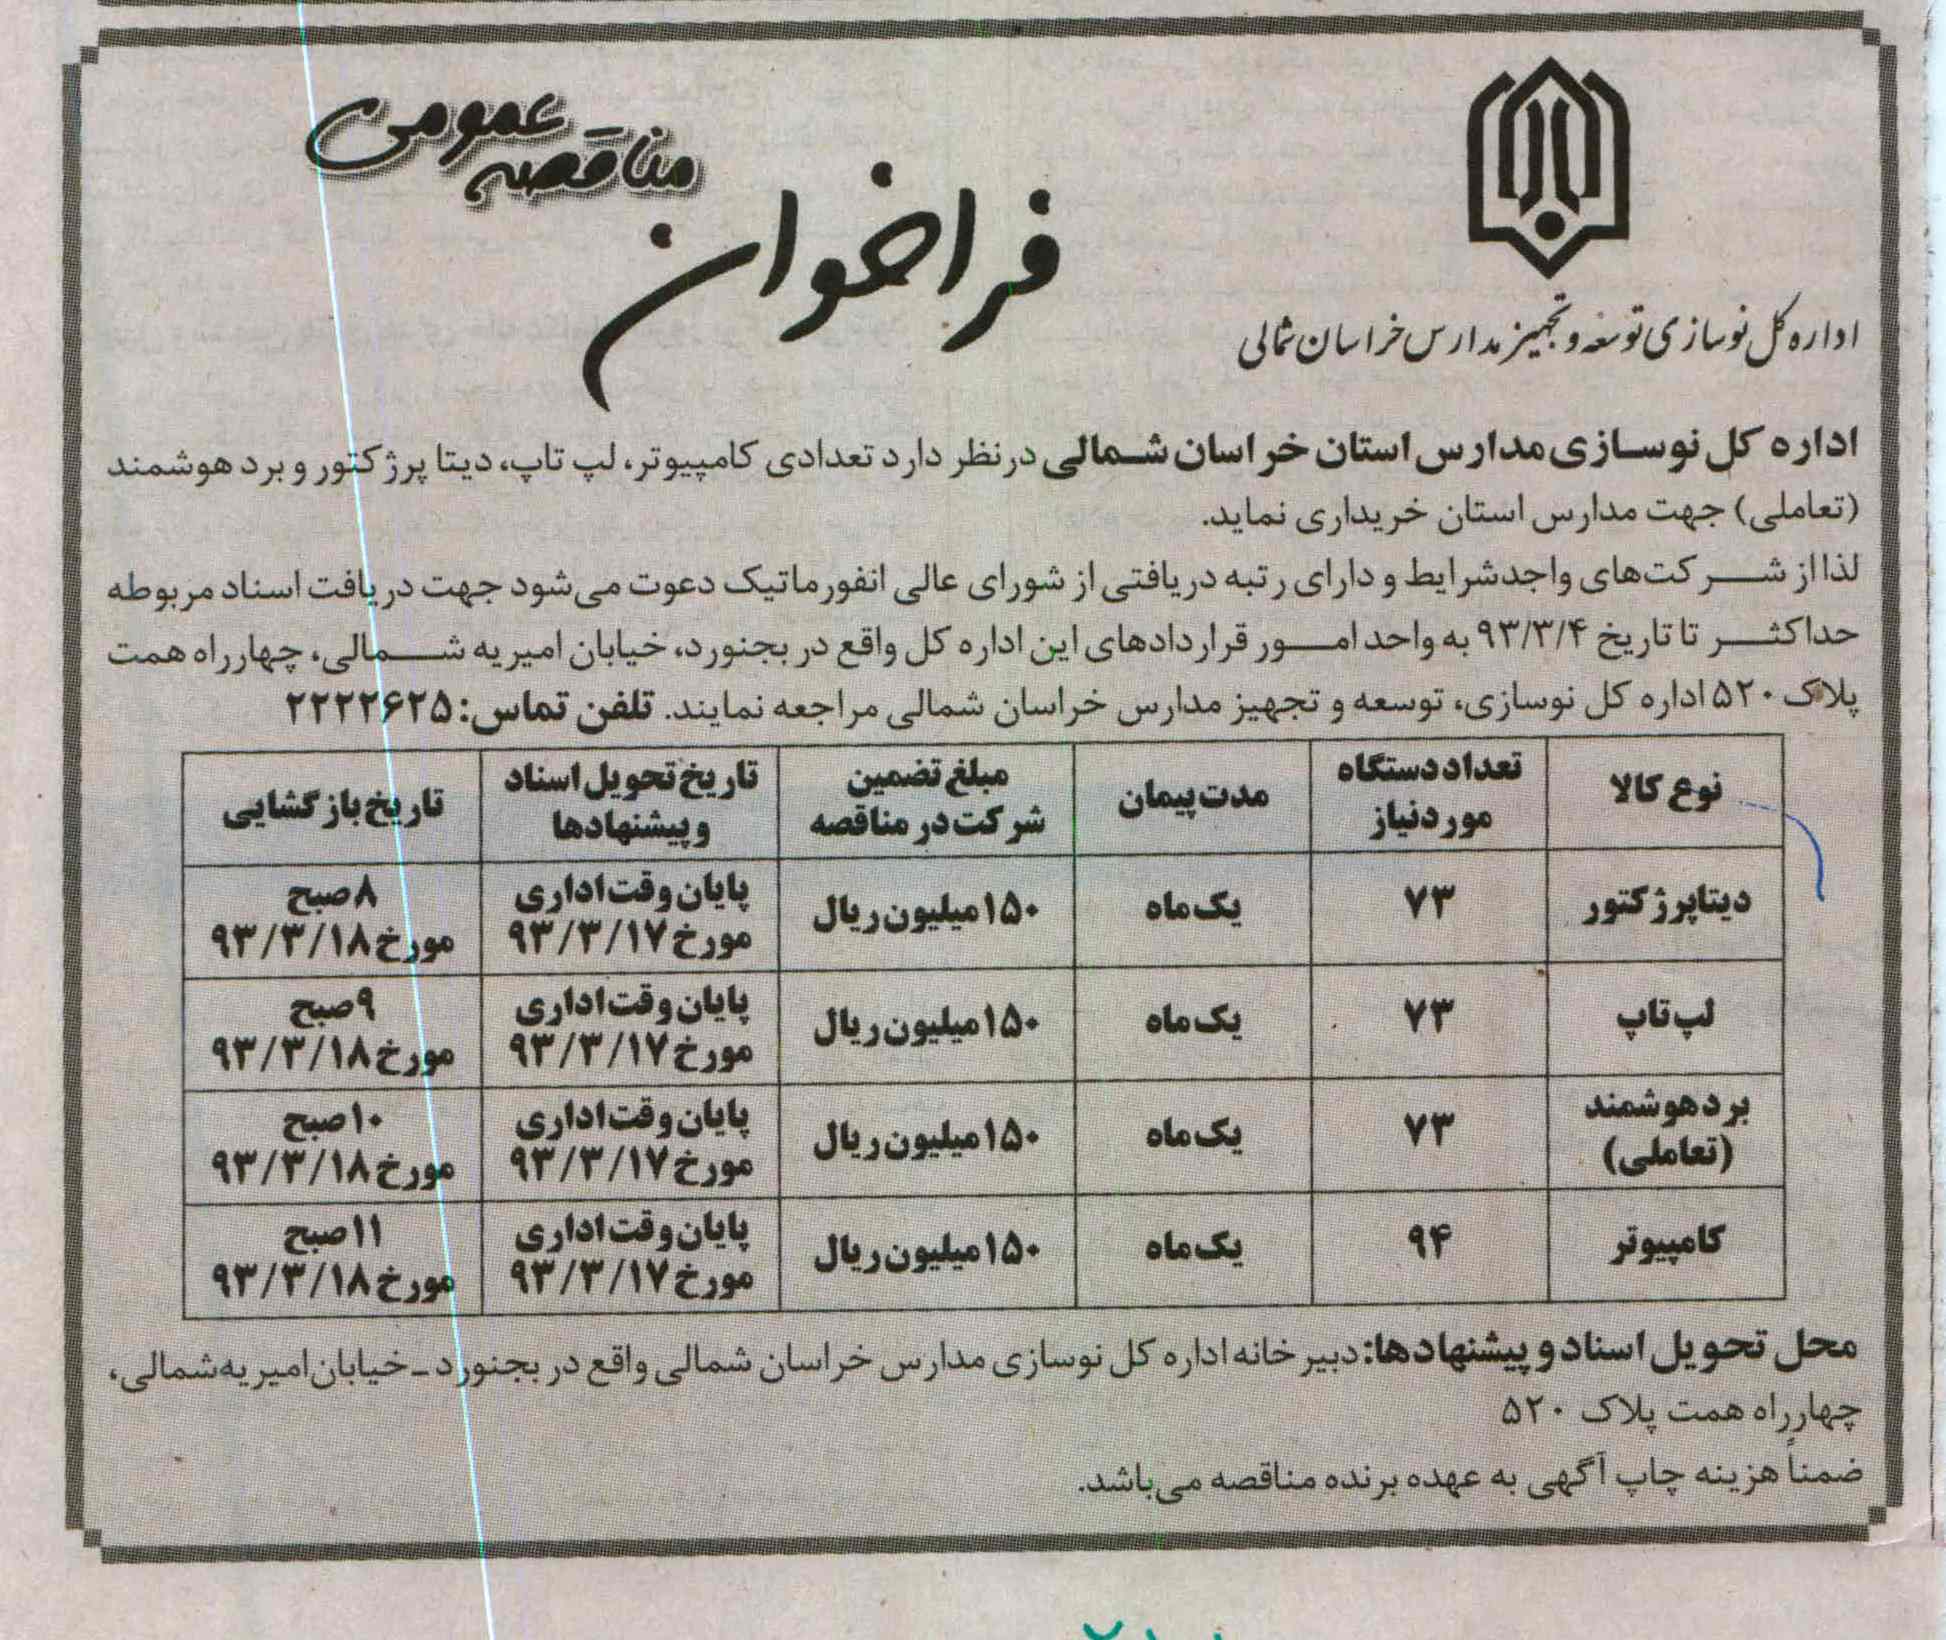 مناقصه عمومی
فراخوان
اداره کل نوسازی توسعه و تجهیز مدارس خراسان شمالی
اداره کل نوسازی مدارس استان خراسان شمالی درنظر دارد تعدادی کامپیوتر، لپ تاپ، دیتا پرژکتور و برد هوشمند
(تعاملی) جهت مدارس استان خریداری نماید.
لذا از شرکت‌های واجدشرایط و دارای رتبه دریافتی از شورای عالی انفورماتیک دعوت می‌شود جهت دریافت اسناد مربوطه
حداکثر تا تاریخ ۹۳/۳/۴ به واحد امور قراردادهای این اداره کل واقع در بجنورد، خیابان امیریه شمالی، چهارراه همت
پلاک ۵۲۰ اداره کل نوسازی، توسعه و تجهیز مدارس خراسان شمالی مراجعه نمایند. تلفن تماس: ۲۲۲۲۶۲۵
نوع کالا | تعداد دستگاه موردنیاز | مدت پیمان | مبلغ تضمین شرکت در مناقصه | تاریخ تحویل اسناد و پیشنهادها | تاریخ بازگشایی
دیتاپرژکتور | ۷۳ | یک ماه | ۱۵۰ میلیون ریال | پایان وقت اداری مورخ ۹۳/۳/۱۷ | ۸ صبح مورخ ۹۳/۳/۱۸
لپ تاپ | ۷۳ | یک ماه | ۱۵۰ میلیون ریال | پایان وقت اداری مورخ ۹۳/۳/۱۷ | ۹ صبح مورخ ۹۳/۳/۱۸
برد هوشمند (تعاملی) | ۷۳ | یک ماه | ۱۵۰ میلیون ریال | پایان وقت اداری مورخ ۹۳/۳/۱۷ | ۱۰ صبح مورخ ۹۳/۳/۱۸
کامپیوتر | ۹۴ | یک ماه | ۱۵۰ میلیون ریال | پایان وقت اداری مورخ ۹۳/۳/۱۷ | ۱۱ صبح مورخ ۹۳/۳/۱۸
محل تحویل اسناد و پیشنهادها: دبیرخانه اداره کل نوسازی مدارس خراسان شمالی واقع در بجنورد ـ خیابان امیریه شمالی،
چهارراه همت پلاک ۵۲۰
ضمناً هزینه چاپ آگهی به عهده برنده مناقصه می‌باشد.